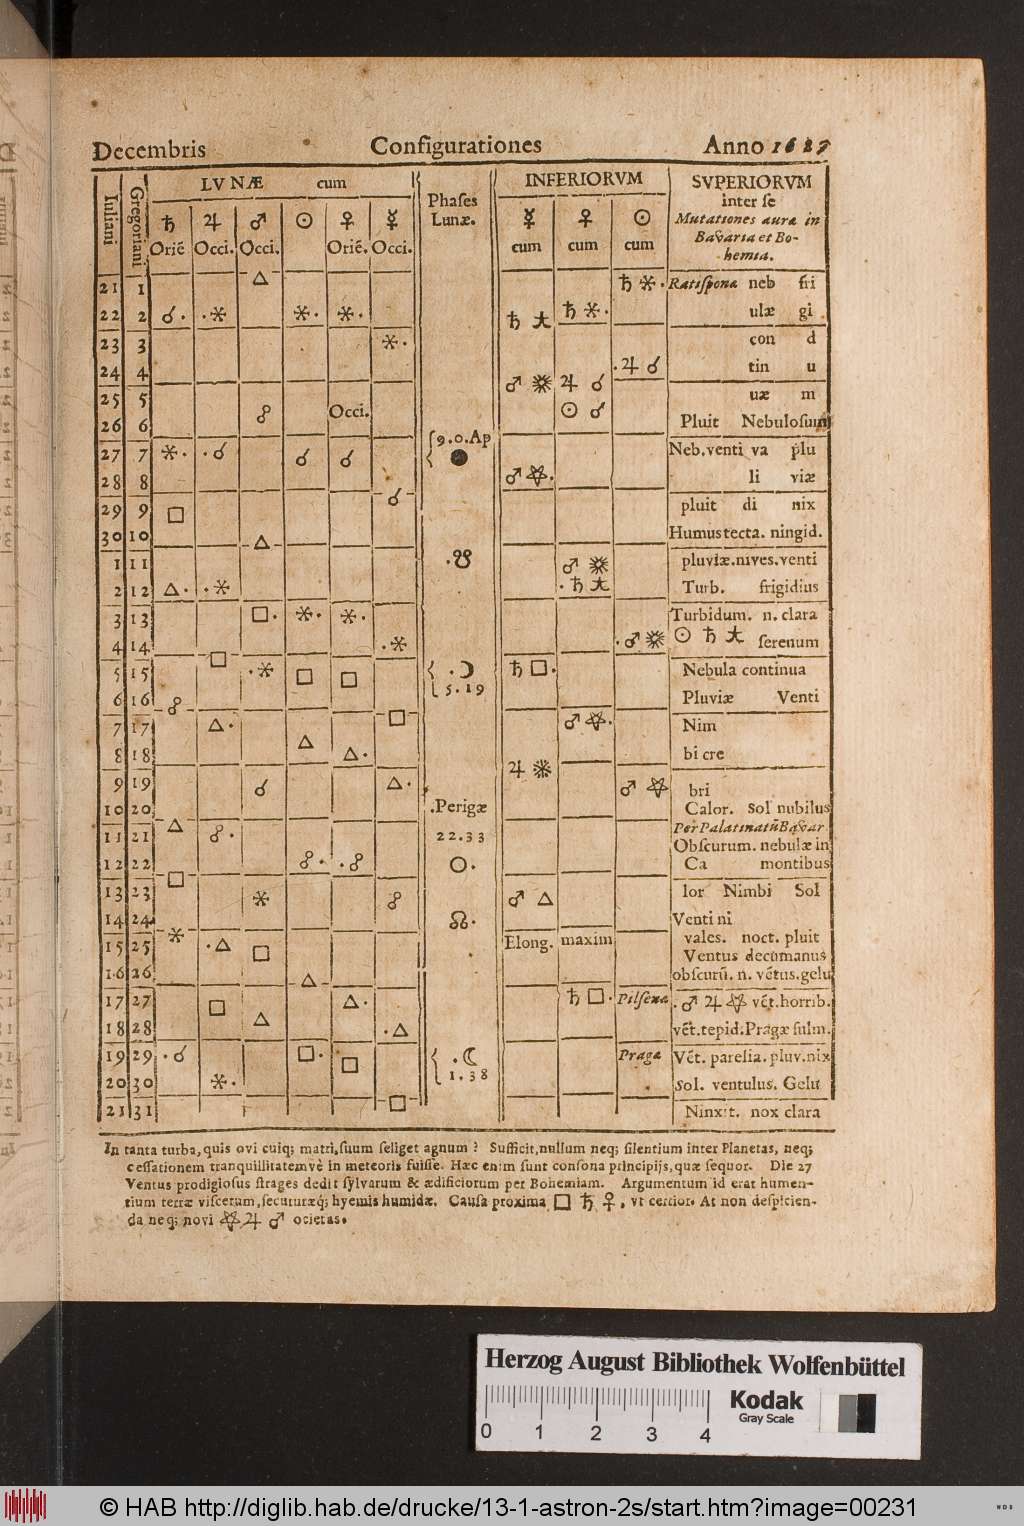 Decembris Configurationes Anno 1627
Iuliani Gregoriani
LVNÆ cum
Phases Lunæ.
INFERIORVM
SVPERIORVM
inter se
Mutationes auræ in
Bavaria et Bo-
hemia.
♄ ♃ ♂ ☉ ♀ ☿
Oriē Occi. Occi. Oriē. Occi.
☿ ♀ ☉
cum cum cum
21 1 △ ♄ ⚹. Ratisponæ neb fri
22 2 ☌. .⚹ ⚹. ⚹. ♄ ♄ ⚹. ulæ gi
23 3 ⚹. con d
24 4 .♃ ☌ tin u
25 5 Occi. ♂ ♃ ☌ uæ m
26 6 ☍ ☉ ☌ Pluit Nebulosum
27 7 ⚹. .☌ ☌ ☌ 9.0.Ap ● Neb.venti va plu
28 8 ☌ ♂ li viæ
29 9 □ pluit di nix
30 10 △ Humus tecta. ningid.
1 11 .☋ ♂ pluviæ.nives.venti
2 12 △. .⚹ .♄ Turb. frigidius
3 13 □. ⚹. ⚹. Turbidum. n. clara
4 14 □ .⚹ .♂ ☉ ♄ serenum
5 15 .⚹ □ □ .☽ ♄ □. Nebula continua
6 16 ☍ 5.19 Pluviæ Venti
7 17 △. □ ♂ Nim
8 18 △ △. bi cre
9 19 ☌ △. ♃ ♂ bri
10 20 .Perigæ Calor. Sol nubilus
Per Palatinatū Bavar.
11 21 △ ☍. 22.33 Obscurum. nebulæ in
12 22 ☍. .☍ ○. Ca montibus
13 23 □ ⚹ ☍ ♂ △ lor Nimbi Sol
14 24 ☊. Venti ni
15 25 ⚹ .△ □ Elong. maxim vales. noct. pluit
Ventus decumanus
16 26 △ obscurū. n. vētus.gelu
17 27 □ △. ♄ □. Pilsenæ .♂ ♃ vēt.horrib.
18 28 △ .△ vēt.tepid.Pragæ fulm.
19 29 .☌ □. □ .☾ Pragæ Vēt. paresia. pluv.nix
20 30 ⚹. 1.38 Sol. ventulus. Gelu
21 31 □ Ninxit. nox clara
In tanta turba, quis ovi cuiq; matri, suum seliget agnum? Sufficit, nullum neq; silentium inter Planetas, neq;
cessationem tranquillitatemvè in meteoris fuisse. Hæc enim sunt consona principijs, quæ sequor. Die 27
Ventus prodigiosus strages dedit sylvarum & ædificiorum per Bohemiam. Argumentum id erat humen-
tium terræ viscerum, secuturæq; hyemis humidæ. Causa proxima □ ♄ ♀, vt certior. At non despicien-
da neq; novi ♃ ♂ ocietas.
Herzog August Bibliothek Wolfenbüttel
0 1 2 3 4
Kodak
Gray Scale
© HAB http://diglib.hab.de/drucke/13-1-astron-2s/start.htm?image=00231